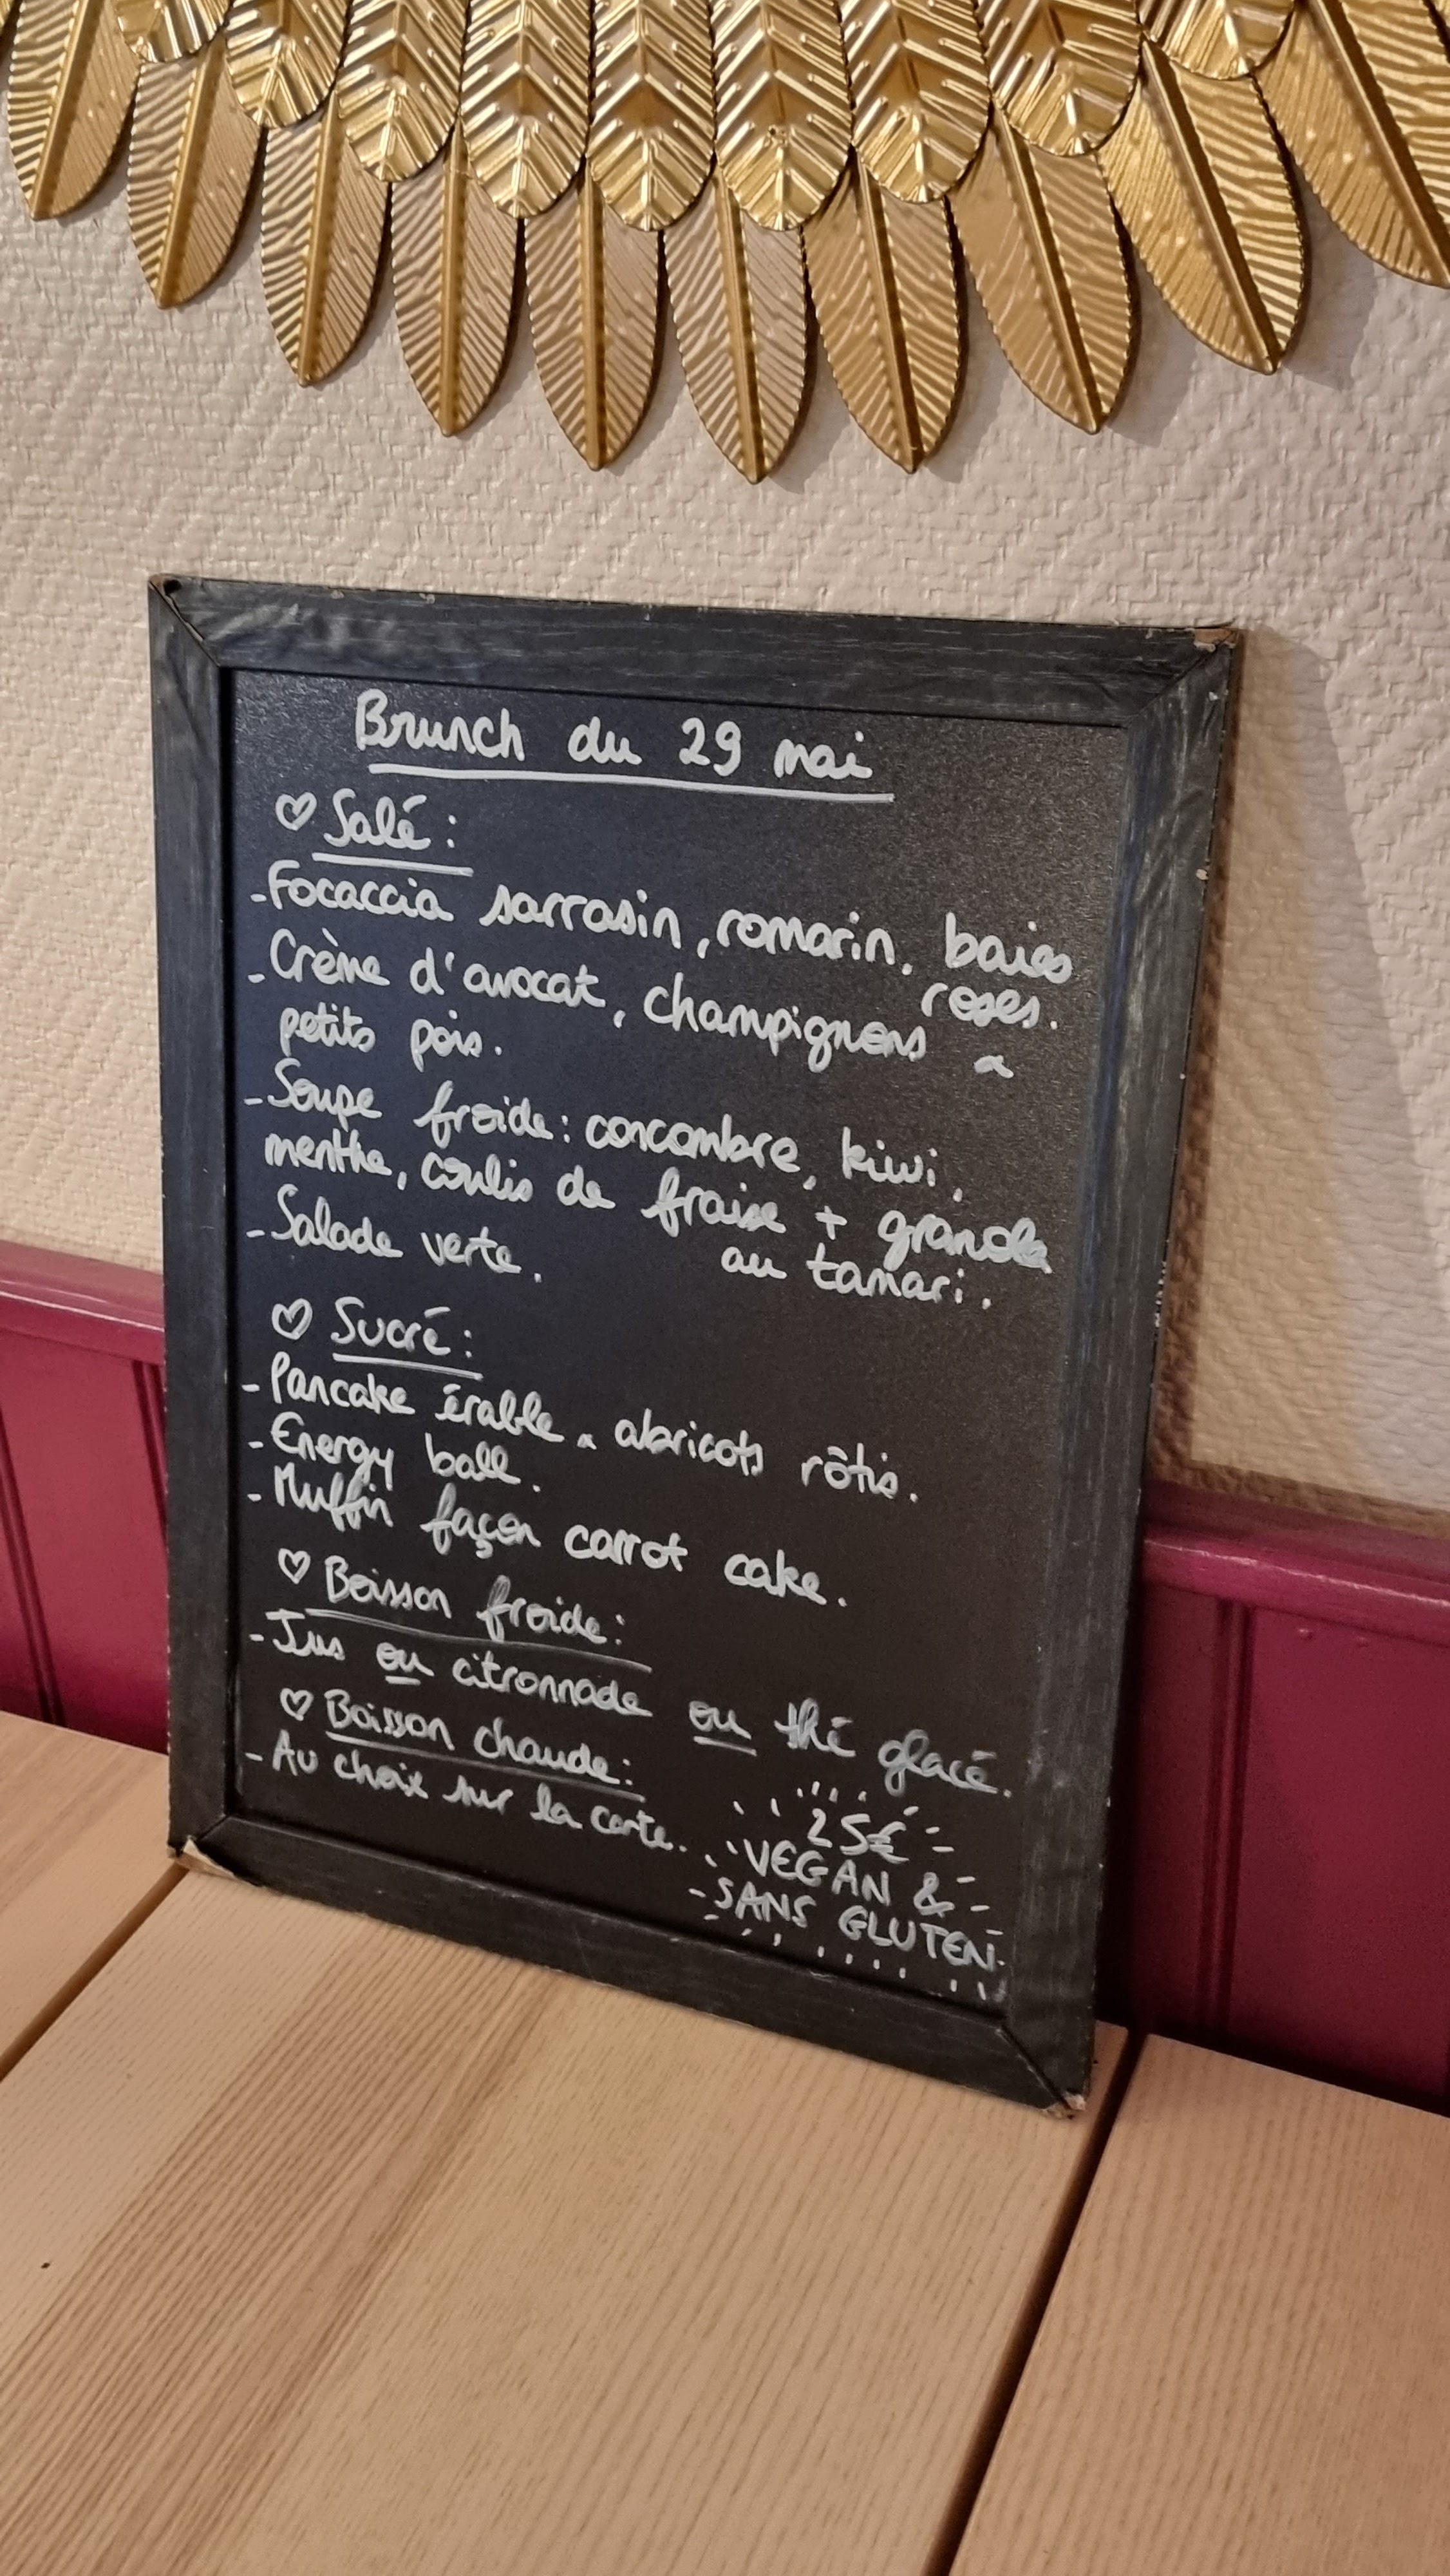 Brunch du 29 mai
♡ Salé :
- Focaccia sarrasin, romarin, baies
roses.
- Crème d'avocat, champignons &
petits pois.
- Soupe froide : concombre, kiwi,
menthe, coulis de fraise + granola
au tamari.
- Salade verte.
♡ Sucré :
- Pancake érable & abricots rôtis.
- Energy ball.
- Muffin façon carrot cake.
♡ Boisson froide :
- Jus ou citronnade ou thé glacé.
♡ Boisson chaude :
- Au choix sur la carte.
25€
VEGAN &
SANS GLUTEN